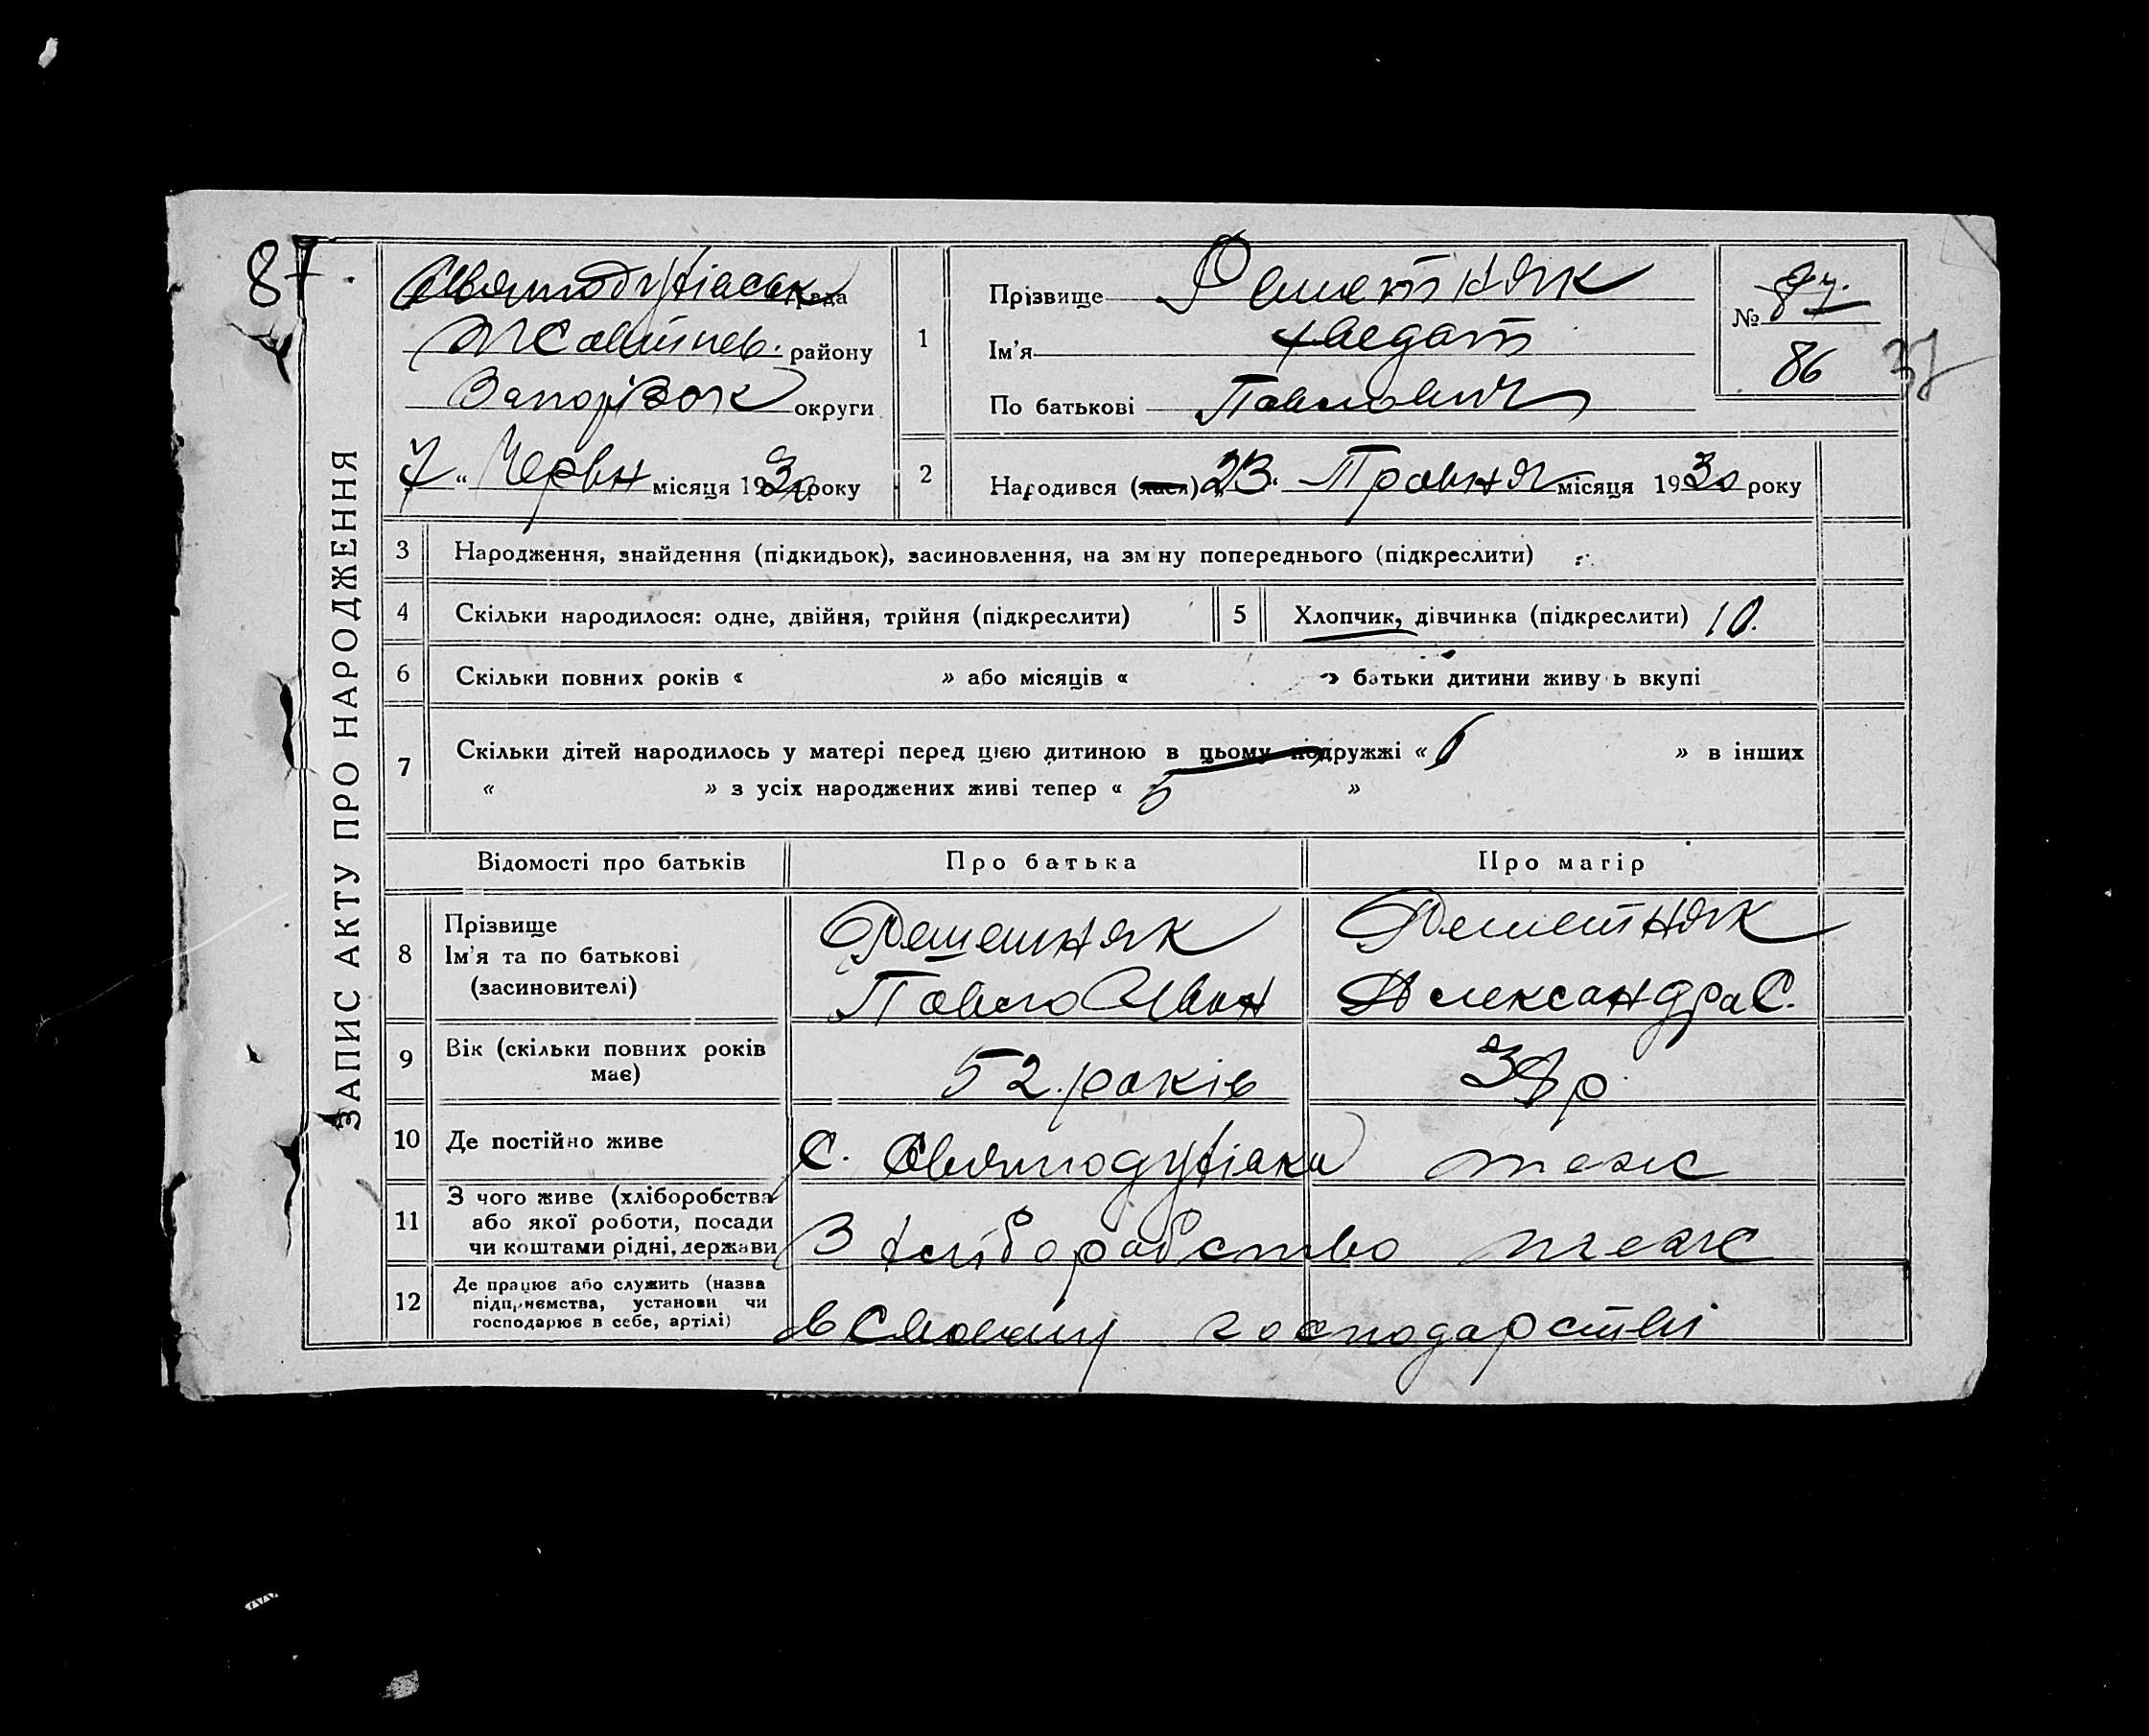 ЗАПИС АКТУ ПРО НАРОДЖЕННЯ
87.
Святодухівськ рада
району
Запорізск округи
7 " Червн місяця 1930 року
1
Прізвище Решетняк
Ім'я Хведат
По батькові Павлович
№ 87.
86
37
2
Народився (лася) 23. Травня місяця 1930 року
3 Народження, знайдення (підкидьок), засиновлення, на зм ну попереднього (підкреслити)
4 Скільки народилося: одне, двійня, трійня (підкреслити) 5 Хлопчик, дівчинка (підкреслити) 10.
6 Скільки повних років « » або місяців « » батьки дитини живу ь вкупі
7 Скільки дітей народилось у матері перед цією дитиною в цьому подружжі « 6 » в інших
« » з усіх народжених живі тепер « 5 »
Відомості про батьків Про батька Про матір
8 Прізвище
Ім'я та по батькові
(засиновителі)
Решетняк
Павло Иван
Решетняк
Александра С.
9 Вік (скільки повних років
має)
52. років 38 р.
10 Де постійно живе С. Святодухівка теж
11 З чого живе (хліборобства
або якої роботи, посади
чи коштами рідні, держави
З хліборобство теж
12 Де працює або служить (назва
підприємства, установи чи
господарює в себе, артілі)
в Своему господарстві